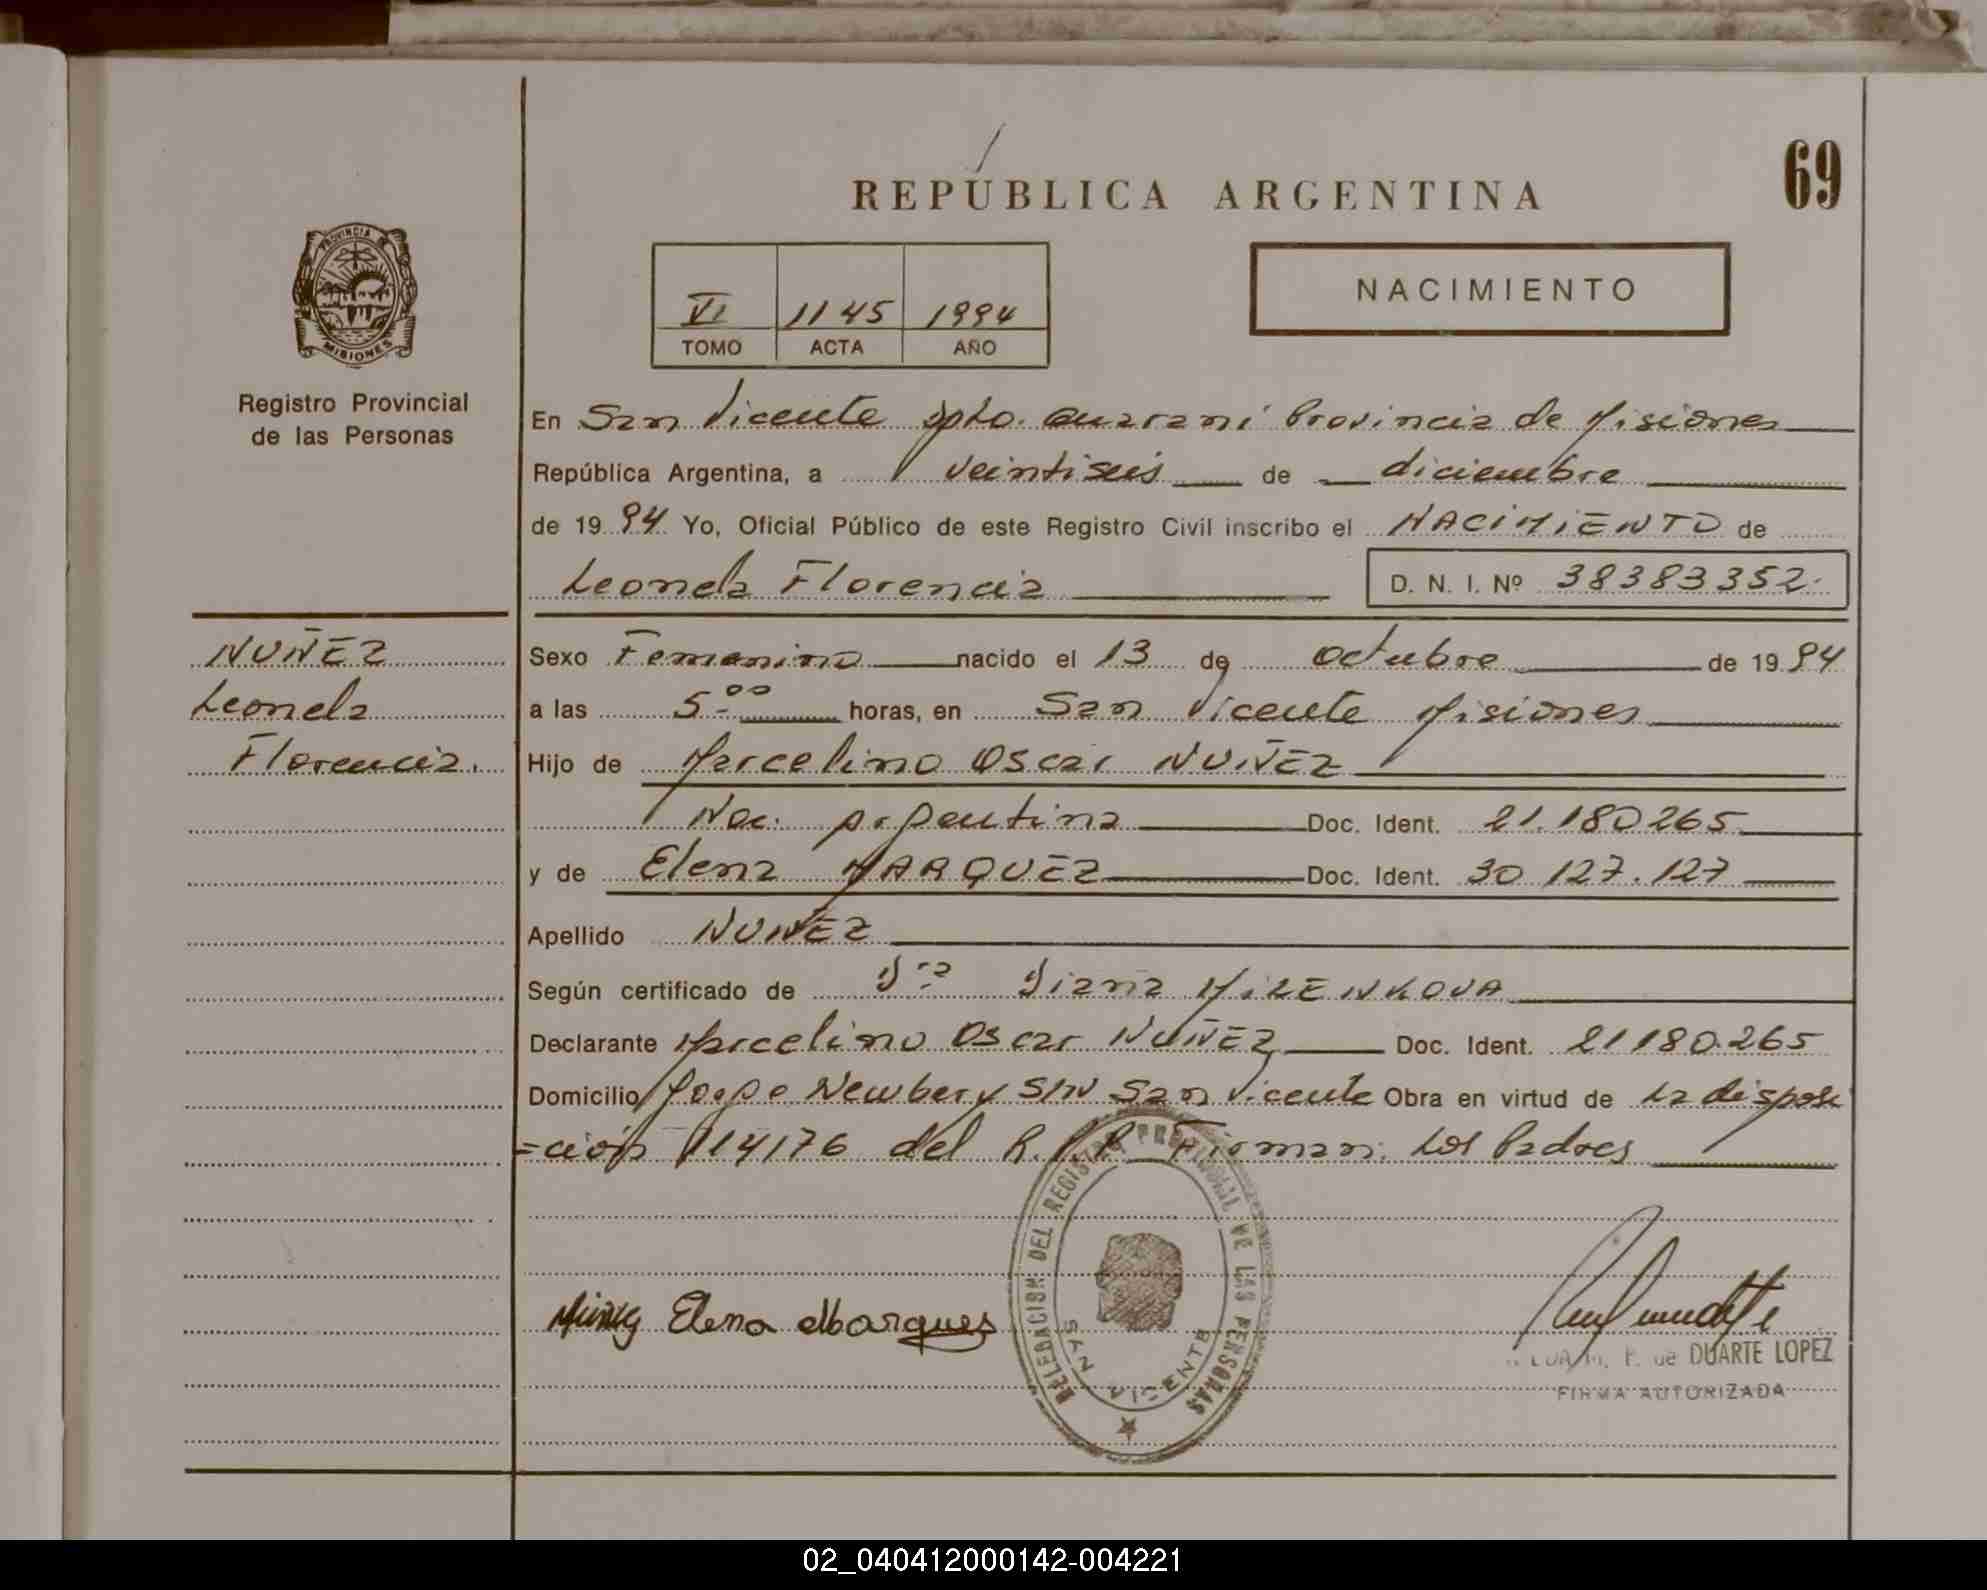 69
REPÚBLICA ARGENTINA
PROVINCIA DE
MISIONES
Registro Provincial
de las Personas
VI 1145 1994
TOMO ACTA AÑO
NACIMIENTO
En San Vicente Dpto. Guaraní Provincia de Misiones
República Argentina, a veintiseis de diciembre
de 19 94 Yo, Oficial Público de este Registro Civil inscribo el NACIMIENTO de
Leonela Florencia D. N. I. Nº 38383352.
NUÑEZ
Leonela
Florencia.
Sexo Femenino nacido el 13 de octubre de 19 94
a las 5-00 horas, en San Vicente Misiones
Hijo de Marcelino Oscar NUÑEZ
Nac. Argentina Doc. Ident. 21.180265
y de Elena MARQUEZ Doc. Ident. 30 127.127
Apellido NUÑEZ
Según certificado de Dra Diana MILENKOVA
Declarante Marcelino Oscar NUÑEZ Doc. Ident. 21180.265
Domicilio Jorge Newbery S/N San Vicente Obra en virtud de la disposi
=ción 114/76 del R.P.P. Firman: Los Padres
DELEGACION DEL REGISTRO PROVINCIAL DE LAS PERSONAS
SAN VICENTE
Elena Marques
P. de DUARTE LOPEZ
FIRMA AUTORIZADA
02_040412000142-004221